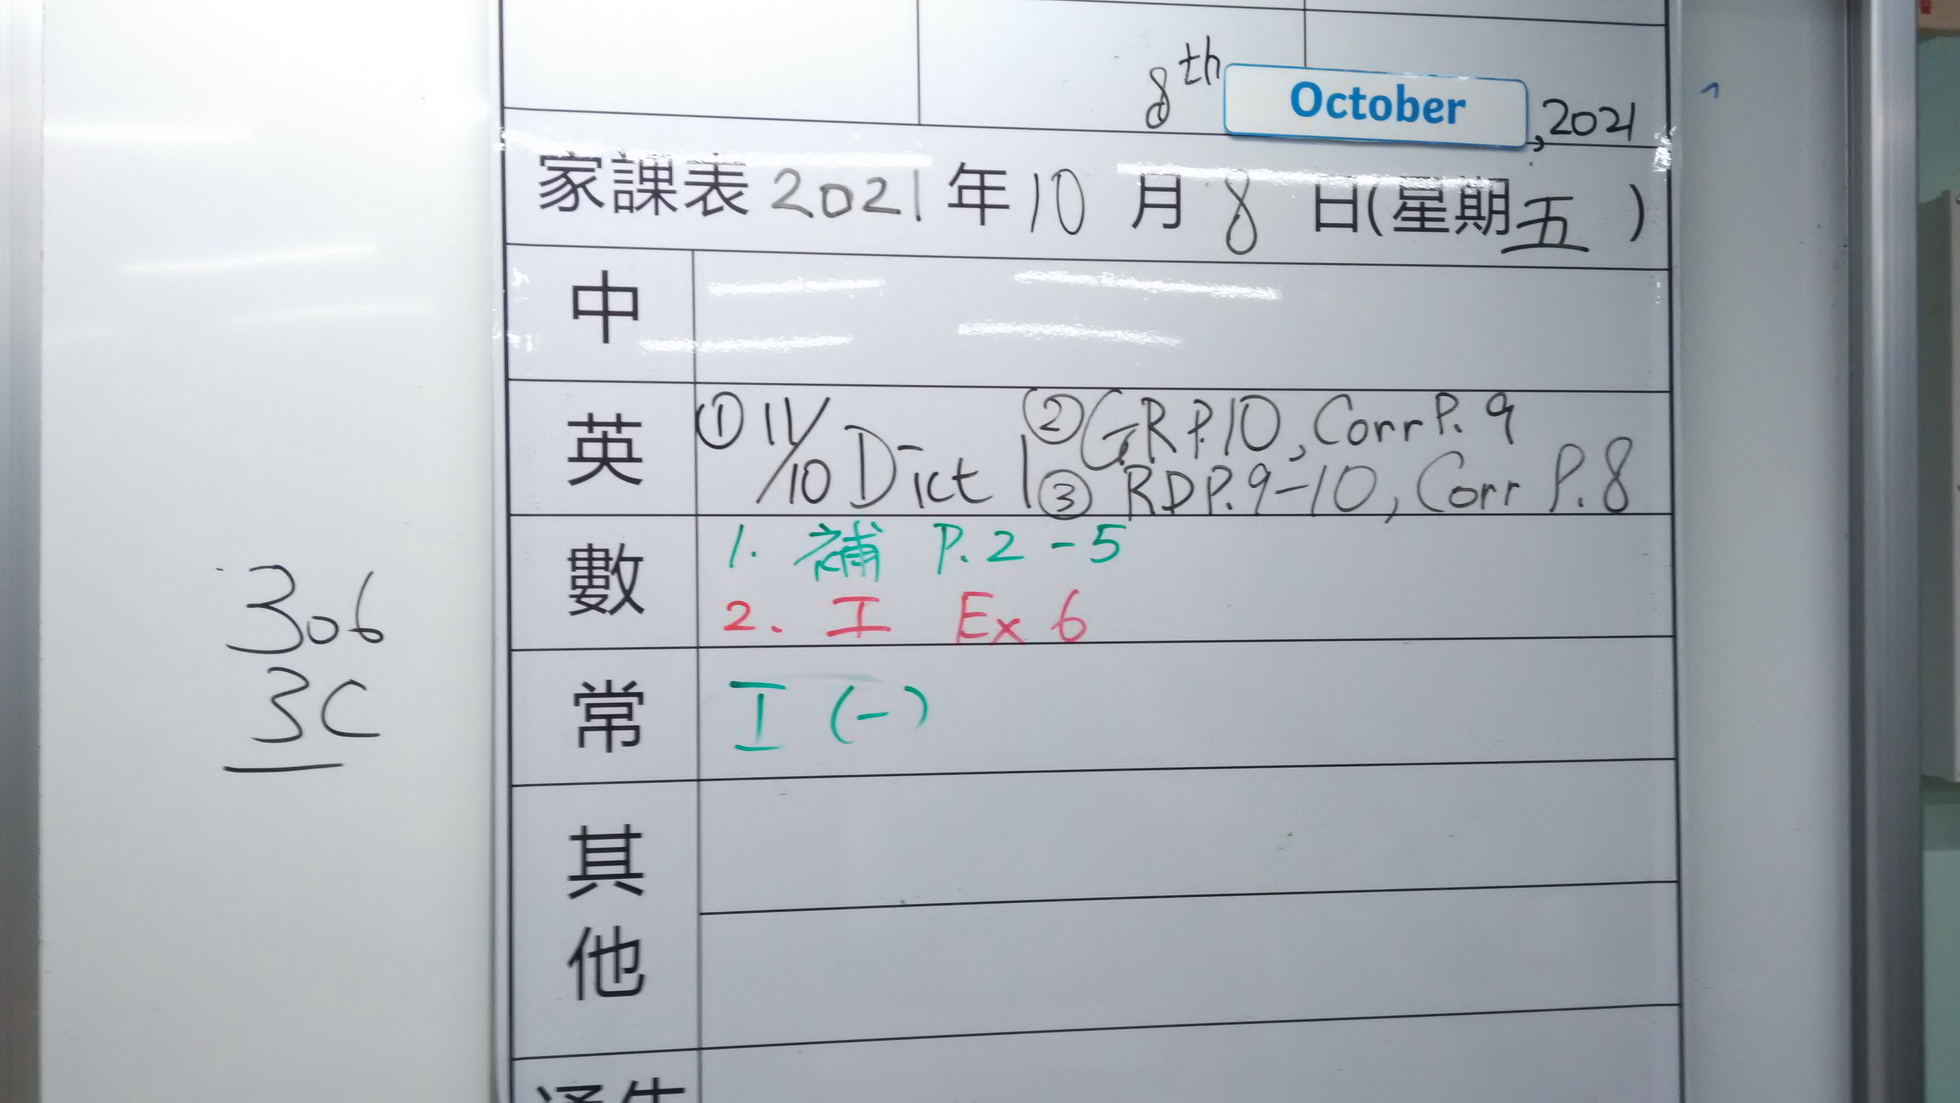 8th October, 2021
家課表 2021 年 10 月 8 日(星期五)
中
英 ① 11/10 Dict 1 ② GR P.10, Corr P. 9
③ RD P.9-10, Corr P. 8
數 1. 補 P. 2 - 5
2. 工 Ex 6
常 工 (一)
其他
306
3C